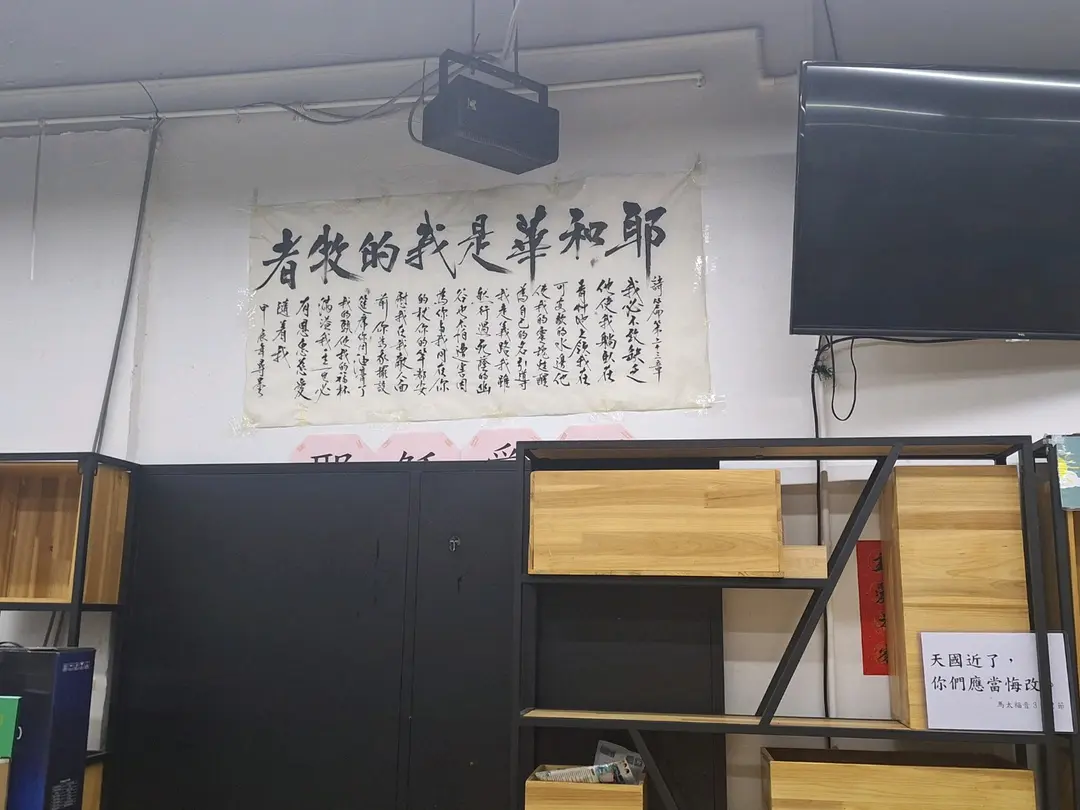 耶和華是我的牧者
詩篇第二十三章
我必不致缺乏
他使我躺臥在
青草地上領我在
可安歇的水邊他
使我的靈魂甦醒
為自己的名引導
我走義路我雖
然行過死蔭的幽
谷也不怕遭害因
為你與我同在你
的杖你的竿都安
慰我在我敵人面
前你為我擺設
筵席你用油膏了
我的頭使我的福杯
滿溢我一生一世必
有恩惠慈愛
隨着我
甲辰年
天國近了，
你們應當悔改。
馬太福音3 節